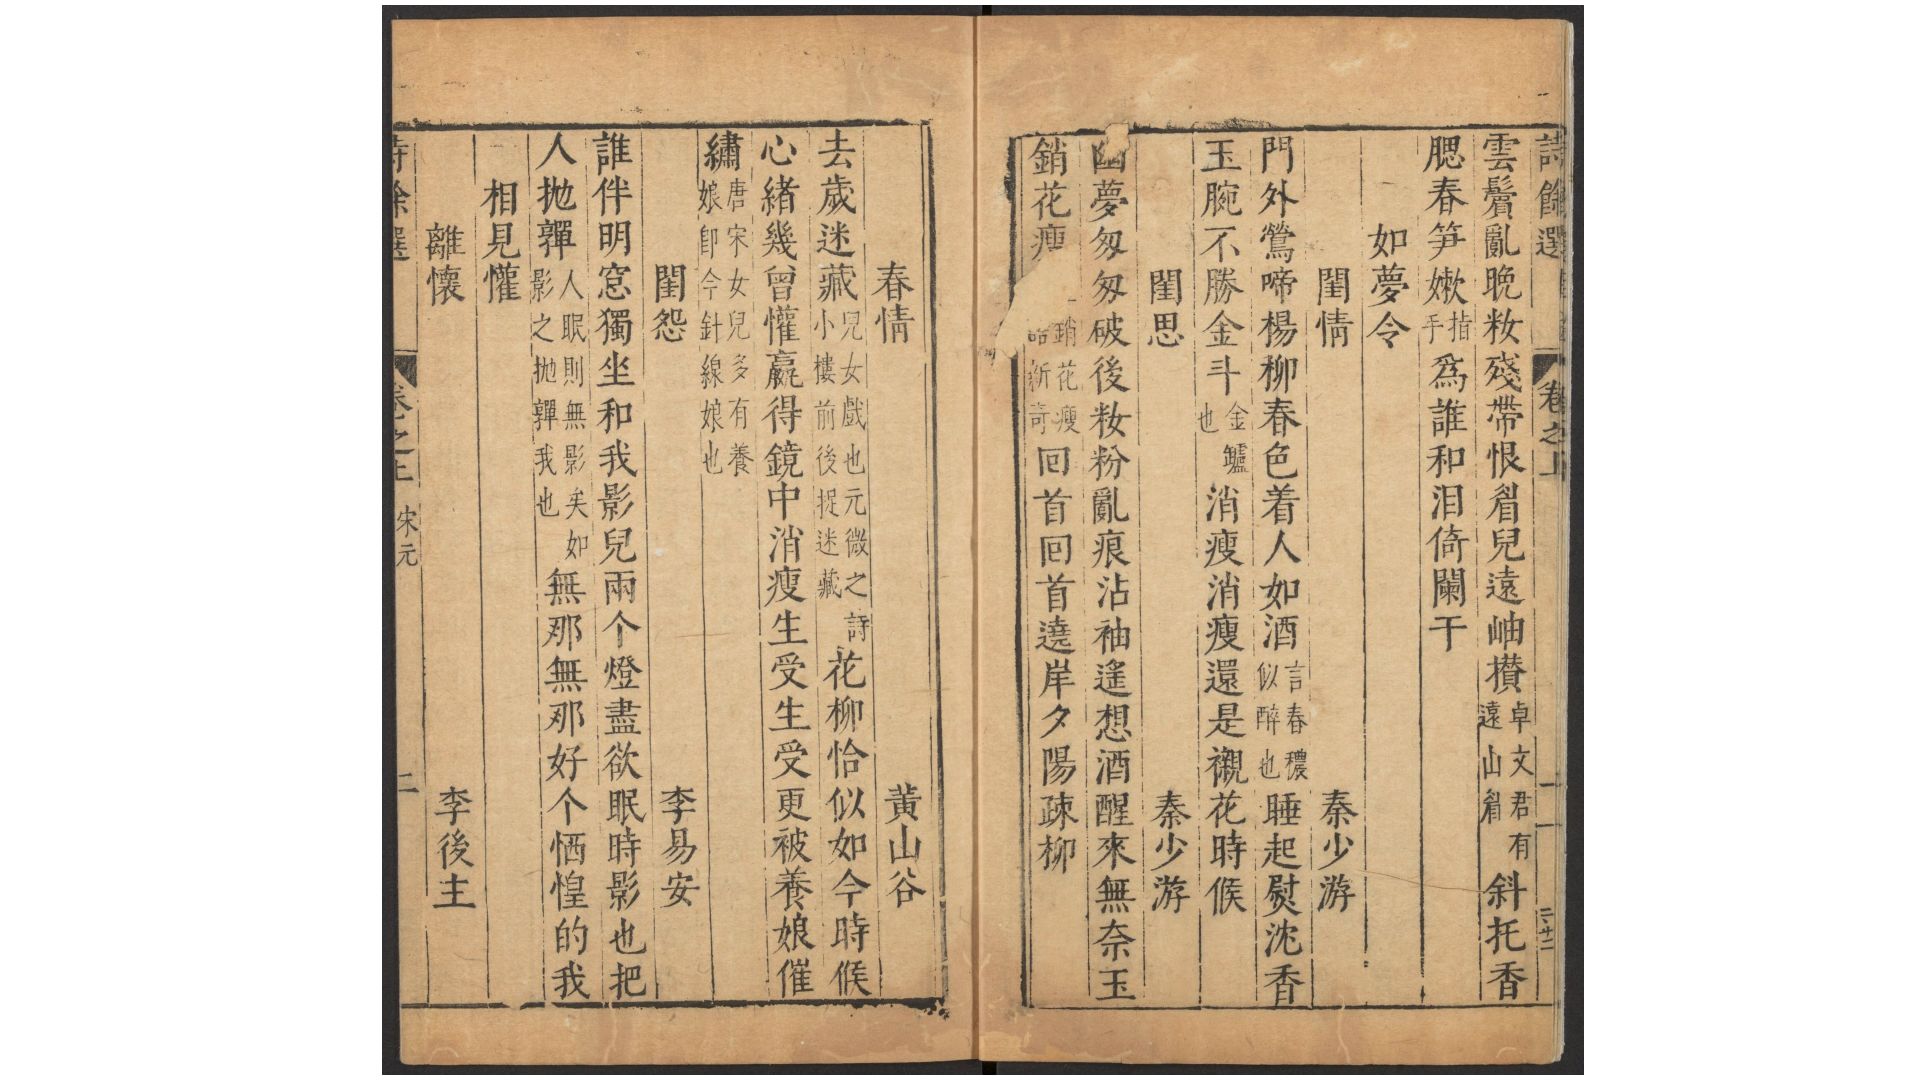 詩餘選 卷之上 二
雲鬢亂晩妝殘帶恨眉兒遠岫攅卓文君有遠山眉斜托香
腮春笋嫰指手爲誰和泪倚闌干
如夢令
閨情 秦少游
門外鶯啼楊柳春色着人如酒言春穠似醉也睡起熨沈香
玉腕不勝金斗金鑪也消瘦消瘦還是襯花時候
閨思 秦少游
幽夢匆匆破後妝粉亂痕沾袖遙想酒醒來無奈玉
銷花瘦銷花瘦語新奇回首回首遶岸夕陽疎柳
春情 黃山谷
去歲迷藏兒女戲也元微之詩小樓前後捉迷藏花柳恰似如今時候
心緒幾曾懽贏得鏡中消瘦生受生受更被養娘催
繡唐宋女兒多有養娘卽今針線娘也
閨怨 李易安
誰伴明窓獨坐和我影兒兩个燈盡欲眠時影也把
人抛嚲人眠則無影矣如影之抛嚲我也無那無那好个恓惶的我
相見懽
離懷 李後主
詩餘選 卷之上 宋元 二